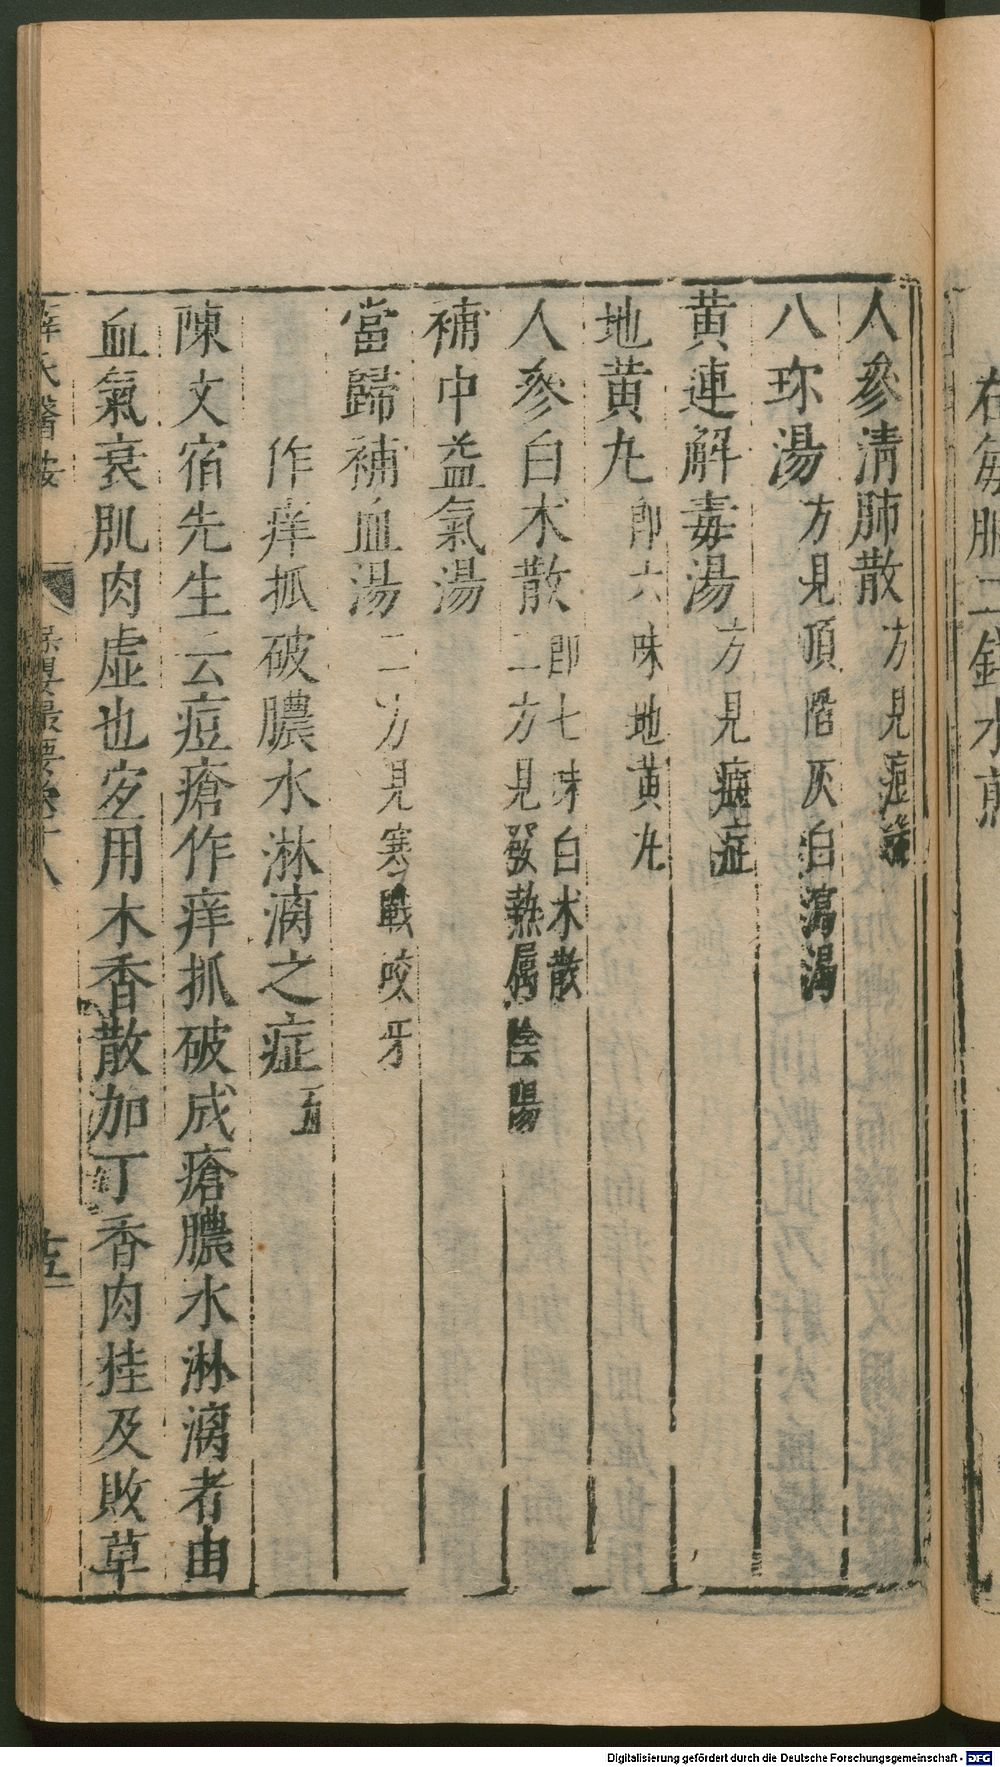 右每服二錢水煎
人參清肺散方見痘
八珍湯方見頂陷灰白瀉渴
黄連解毒湯方見癍症
地黄丸即六味地黄丸
人參白术散即七味白术散二方見發熱屬陰陽
補中益氣湯
當歸補血湯二方見寒戰咬牙
作痒抓破膿水淋漓之症五
陳文宿先生云痘瘡作痒抓破成瘡膿水淋漓者由
血氣衰肌肉虚也宐用木香散加丁香肉桂及敗草
薛氏醫按 保嬰最要卷十八 十五
Digitalisierung gefördert durch die Deutsche Forschungsgemeinschaft - DFG